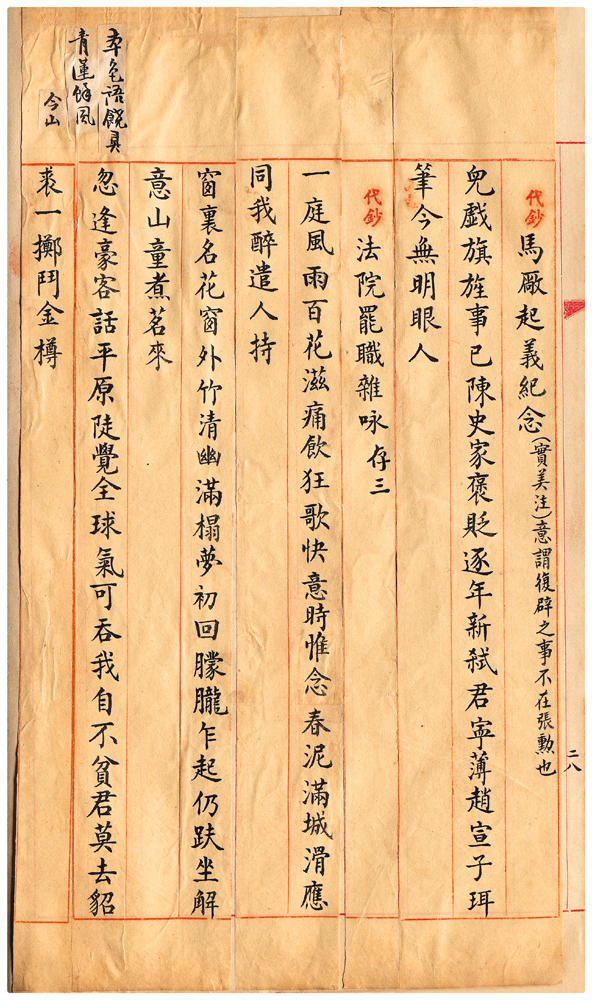 二八
代鈔
馬厰起義紀念(實美注)意謂復辟之事不在張勳也
兒戲旗旌事已陳史家褒貶逐年新弒君寜薄趙宣子珥
筆今無明眼人
代鈔
法院罷職雜咏存三
一庭風雨百花滋痛飲狂歌快意時惟念春泥滿城滑應
同我醉遣人持
窗裏名花窗外竹清幽滿榻夢初回朦朧乍起仍趺坐解
意山童煮茗來
忽逢豪客話平原陡覺全球氣可吞我自不貧君莫去貂
裘一擲鬥金樽
本色語饒具
青蓮餘風
今山